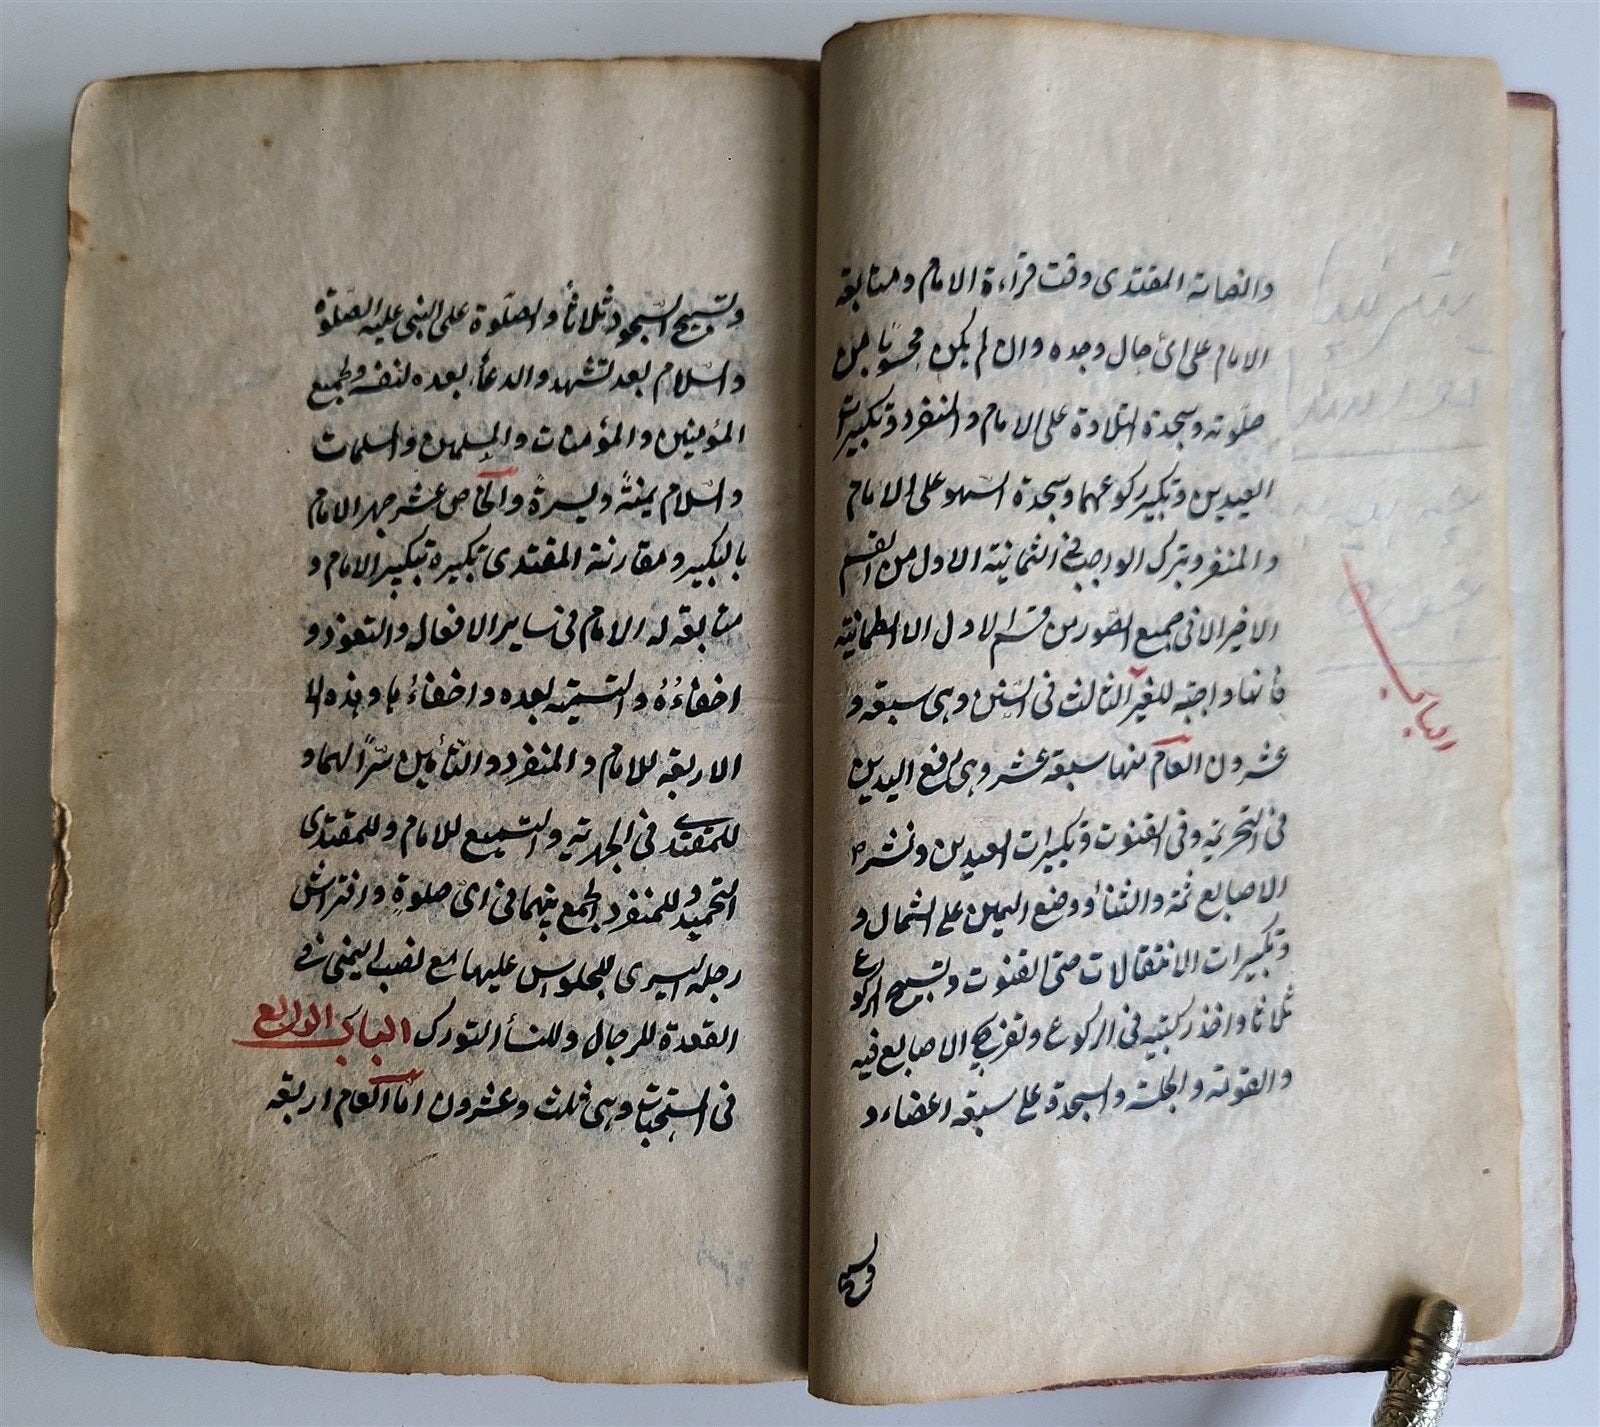 والضاتة المقتدى وقت قراءة الامام ومتابعة
الامام على اى حال وجده وان لم يكن محسوبا من
صلوته وسجدة التلاوة على الامام والمنفرد وتكبيرات
العيدين وتكبير ركوعهما وسجدة السهو على الامام
والمنفرد بترك الواجب فى الثمانية الاول من القسم
الاخير لا فى جميع الصور من قسم الاول الا الطمانينة
فأنها واجبة للغير الثالث فى السنن وهى سبعة و
عشرون العام منها سبعة عشر وهى رفع اليدين
فى التحريمة وفى القنوت وتكبيرات العيدين ونشر
الاصابع ثمة والثناء ووضع اليمين على الشمال و
وتكبيرات الانتقالات حتى القنوت وتسبيح الركوع
ثلاثا واخذ ركبتيه فى الركوع وتفريج الاصابع فيه
والقومة والجلسة والسجدة على سبعة اعضاء و
الباب
وتسبيح
وتسبيح السجود ثلاثاً والصلوة على النبى عليه الصلوة
والسلام بعد تشهد والدعاء بعده لنفسه ولجميع
المؤمنين والمؤمنات والمسلمين والمسلمات
والسلام يمنةً ويسرةً والخاص عشر جهر الامام
بالتكبير ومقارنة المقتدى تكبيره تبكبير الامام و
متابعته له الامام فى ساير الافعال والتعوذ و
اخفاءُهُ والتسمية بعده واخفاءُها وهذه الا
الاربعة للامام والمنفرد والتأمين سرّاً لهما و
للمقتدى فى الجهرية والتسميع للامام وللمقتدى
التحميد وللمنفرد الجمع بينهما فى اى صلوةٍ وافتراش
رجله اليسرى للجلوس عليها مع نصب اليمنى فى
القعدة للرجال وللنسأ التورك الباب الرابع
فى المستحبات وهى ثلث وعشرون امّا العام اربعة